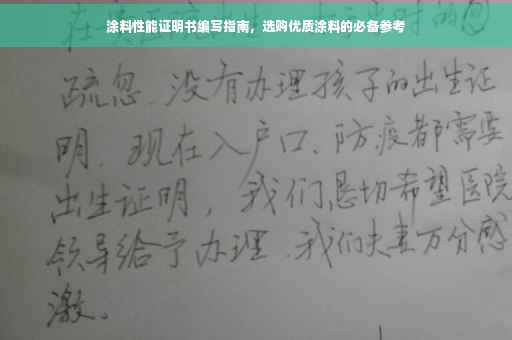 涂料性能证明书编写指南，选购优质涂料的必备参考
疏忽、没有办理孩子的出生证
明、现在入户口、防疫都需要
出生证明，我们恳切希望医院
领导给予办理、我们夫妻万分感
激。